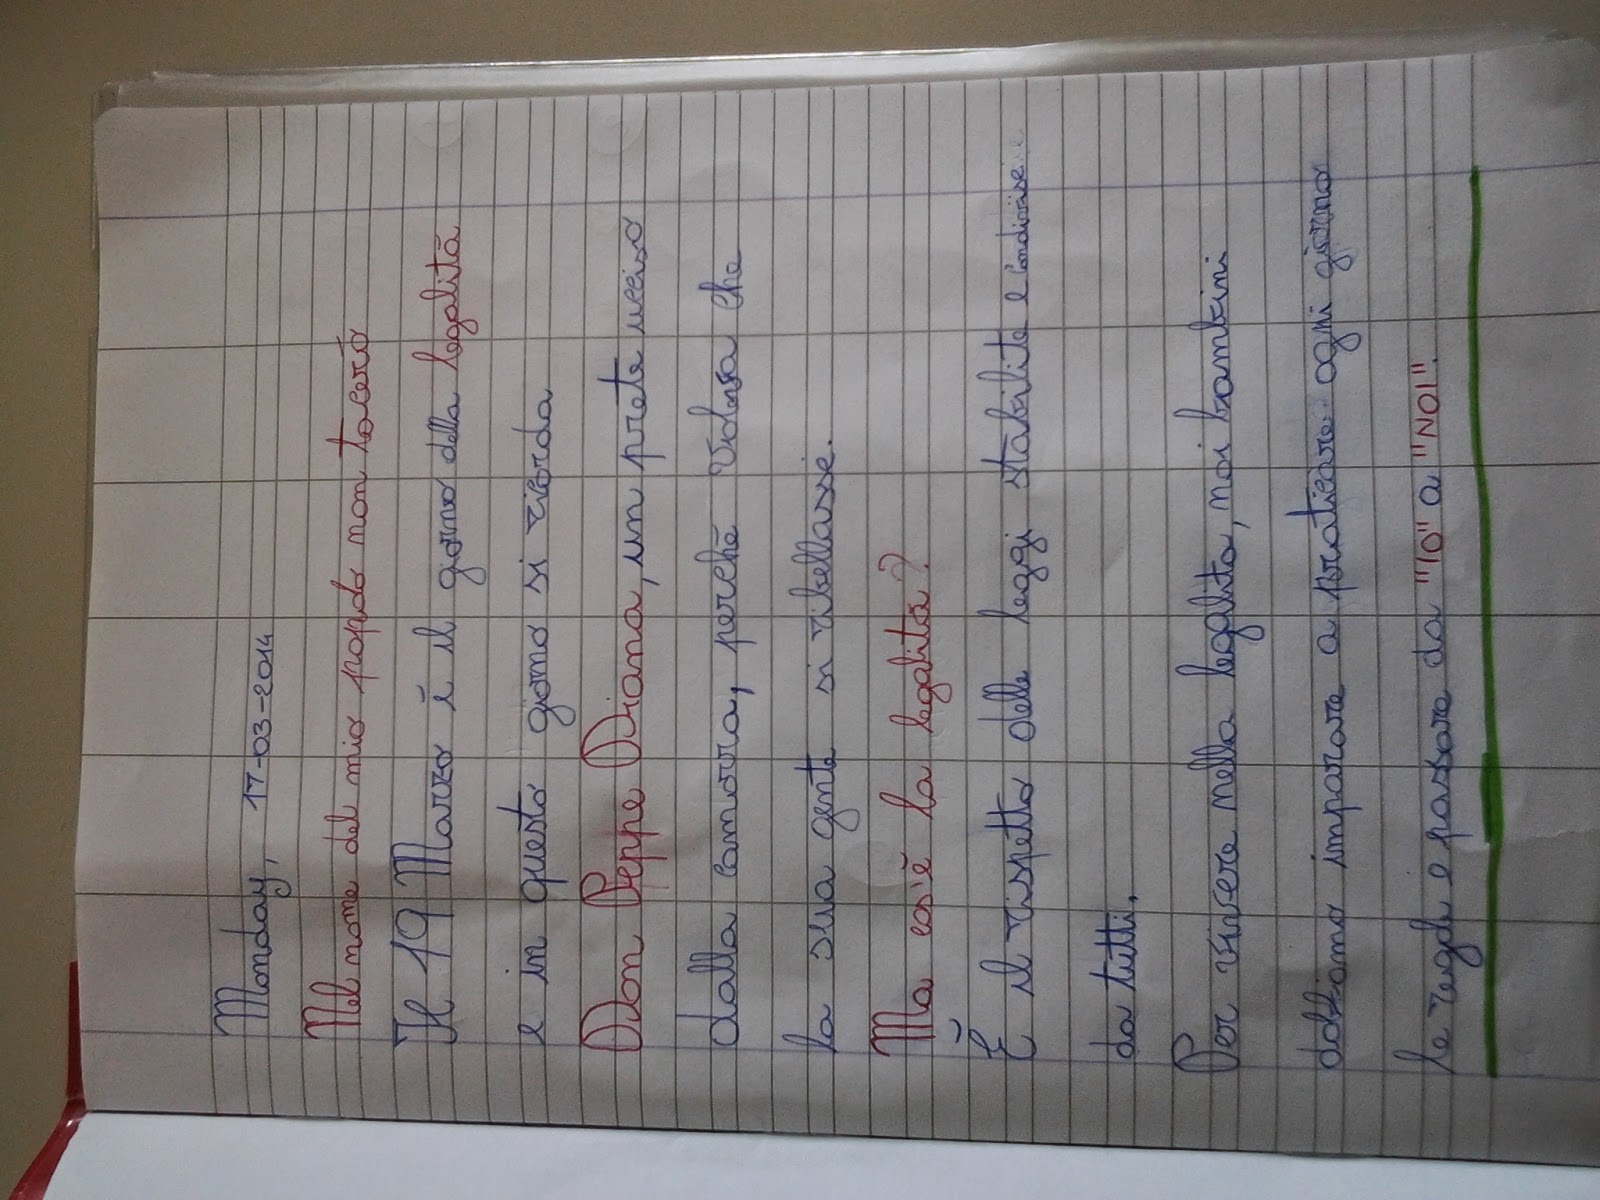 Monday, 17-03-2014
Nel nome del mio popolo non tacerò
Il 19 Marzo è il giorno della legalità
e in questo giorno si ricorda
Don Peppe Diana, un prete ucciso
dalla camorra, perchè voleva che
la sua gente si ribellasse.
Ma cos'è la legalità?
È il rispetto delle leggi stabilite e condivise
da tutti.
Per vivere nella legalità, noi bambini
dobbiamo imparare a praticare ogni giorno
le regole e passare da "IO" a "NOI".